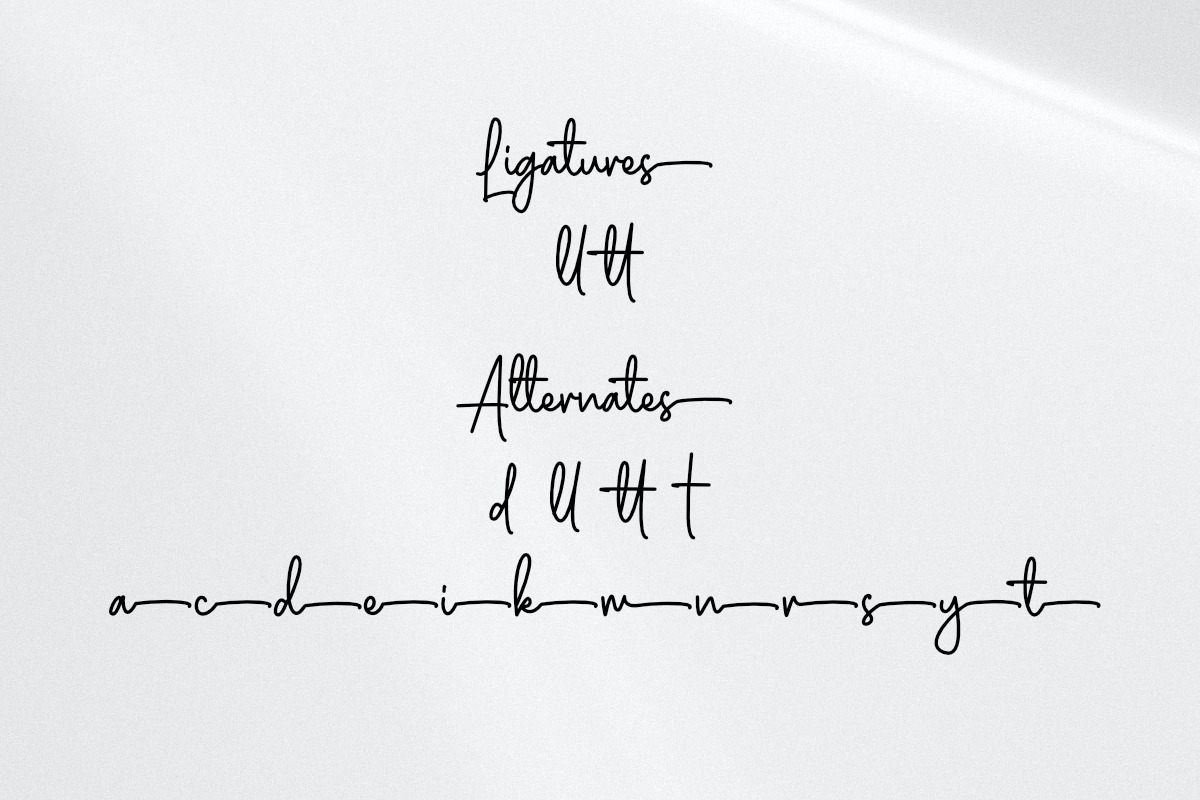 Ligatures
ll tt
Alternates
d ll tt t
a c d e i k m n r s y t